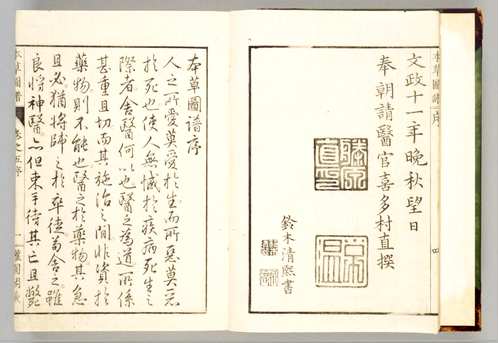 本草圖譜序
文政十一年晚秋望日
奉 朝請醫官喜多村直撰
鈴木清熙書
藤原
直印
本草圖譜序
人之所愛莫愛於生而所惡莫惡
於死也使人無憾於疾病死生之
際者舍醫何以也醫之為道一所係
甚重且切而其施治之間非資於
藥物則不能也醫之於藥物其急
且必猶將帥之於卒徒苟舍之雖
良將神醫亦但束手待其亡且斃
本草圖譜
卷之五序
一